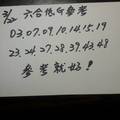 3/22 六合彩 参考
03.07.09.10.14.15.19
23.24.27.28.39.43.48
参考就好!